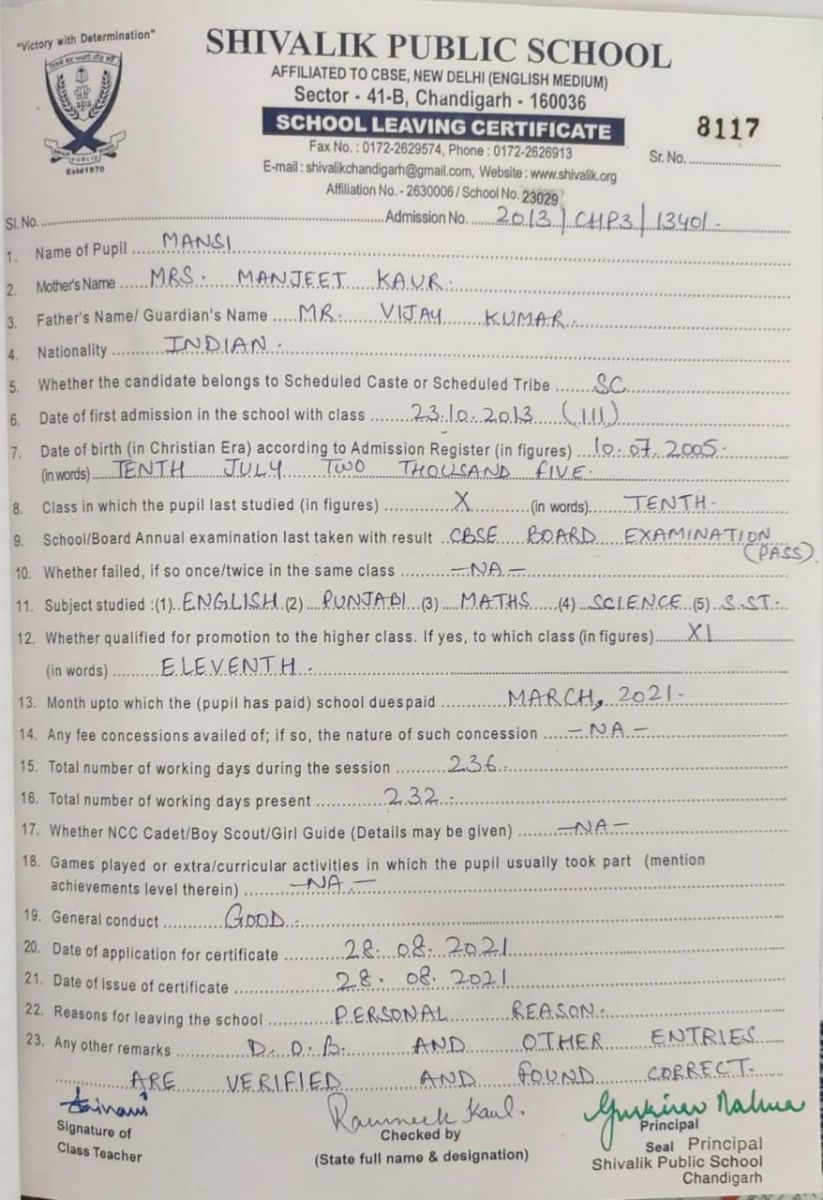 "Victory with Determination"
SHIVALIK PUBLIC SCHOOL
AFFILIATED TO CBSE, NEW DELHI (ENGLISH MEDIUM)
Sector - 41-B, Chandigarh - 160036
SCHOOL LEAVING CERTIFICATE
8117
Fax No. : 0172-2629574, Phone : 0172-2626913
Sr. No. ....................
E-mail : shivalikchandigarh@gmail.com, Website : www.shivalik.org
Estd 1970
Affiliation No. - 2630006 / School No. 23029
Sl. No. .................... Admission No. 2013/CHP3/13401-
1. Name of Pupil MANSI
2. Mother's Name MRS. MANJEET KAUR.
3. Father's Name/ Guardian's Name MR. VIJAY KUMAR.
4. Nationality INDIAN.
5. Whether the candidate belongs to Scheduled Caste or Scheduled Tribe SC
6. Date of first admission in the school with class 23.10.2013 (III)
7. Date of birth (in Christian Era) according to Admission Register (in figures) 10.07.2005.
(in words) TENTH JULY TWO THOUSAND FIVE.
8. Class in which the pupil last studied (in figures) X (in words) TENTH-
9. School/Board Annual examination last taken with result CBSE BOARD EXAMINATION
(PASS)
10. Whether failed, if so once/twice in the same class -NA-
11. Subject studied :(1) ENGLISH (2) PUNJABI (3) MATHS (4) SCIENCE (5) S.ST.
12. Whether qualified for promotion to the higher class. If yes, to which class (in figures) XI
(in words) ELEVENTH.
13. Month upto which the (pupil has paid) school duespaid MARCH, 2021-
14. Any fee concessions availed of; if so, the nature of such concession -NA-
15. Total number of working days during the session 236.
16. Total number of working days present 232.
17. Whether NCC Cadet/Boy Scout/Girl Guide (Details may be given) -NA-
18. Games played or extra/curricular activities in which the pupil usually took part (mention
achievements level therein) -NA-
19. General conduct GOOD.
20. Date of application for certificate 28.08.2021
21. Date of issue of certificate 28.08.2021
22. Reasons for leaving the school PERSONAL REASON.
23. Any other remarks D.O.B. AND OTHER ENTRIES
ARE VERIFIED AND FOUND CORRECT.
Signature of
Class Teacher
Checked by
(State full name & designation)
Principal
Seal Principal
Shivalik Public School
Chandigarh